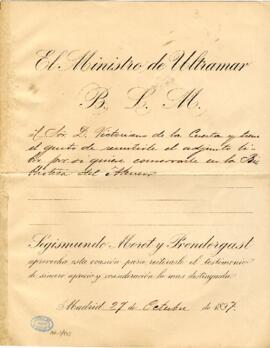 El Ministro de Ultramar
B. L. M.
al Sor. D. Victoriano de la Cuesta y tiene
el gusto de remitirle el adjunto li-
bro por si quiere conservarle en la Bi-
blioteca del Ateneo
Segismundo Moret y Prendergast
aprovecha esta ocasión para reiterarle el testimonio
de sincero aprecio y consideración la mas distinguida.
Madrid 27 de Octubre de 1897.